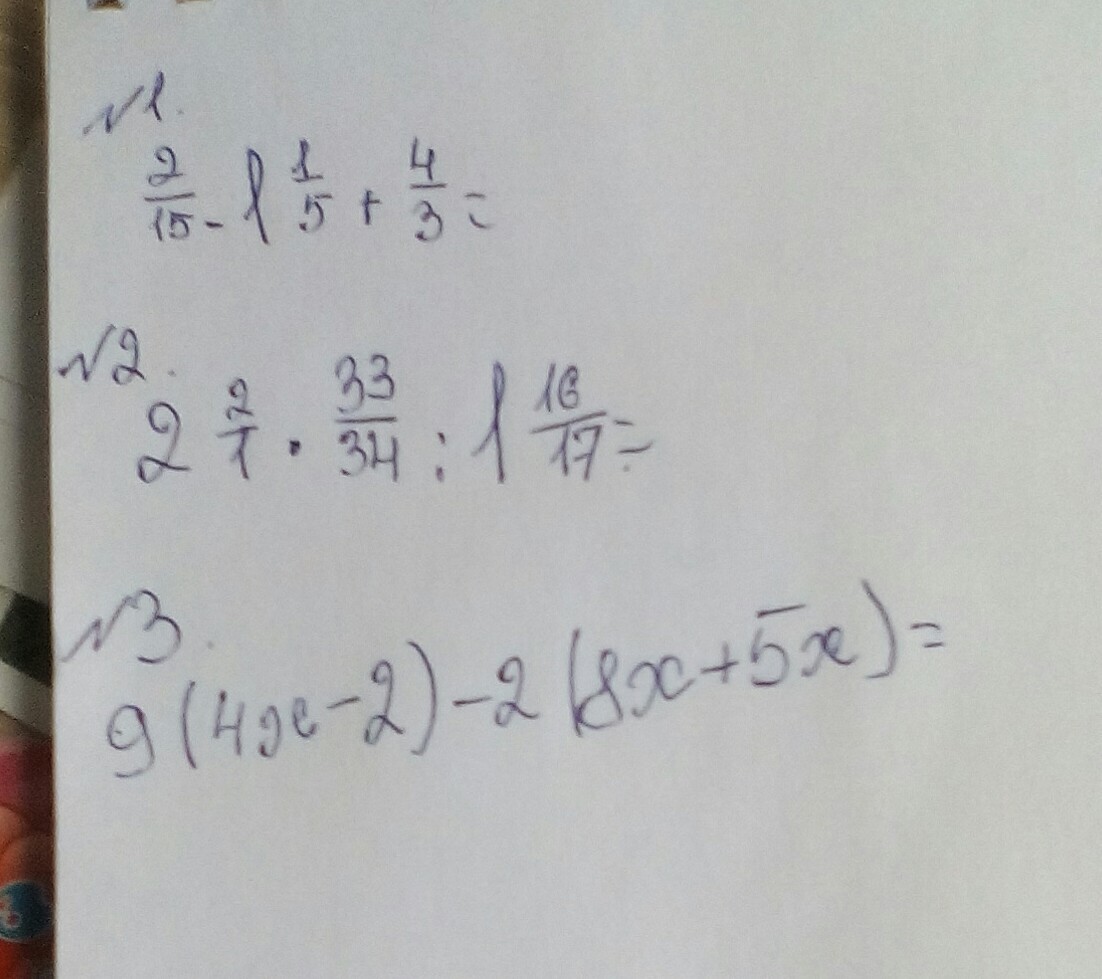 №1.
2/15 - 1 1/5 + 4/3 =
№2.
2 2/1 · 33/34 : 1 16/17 =
№3.
9(4x-2)-2(8x+5x)=